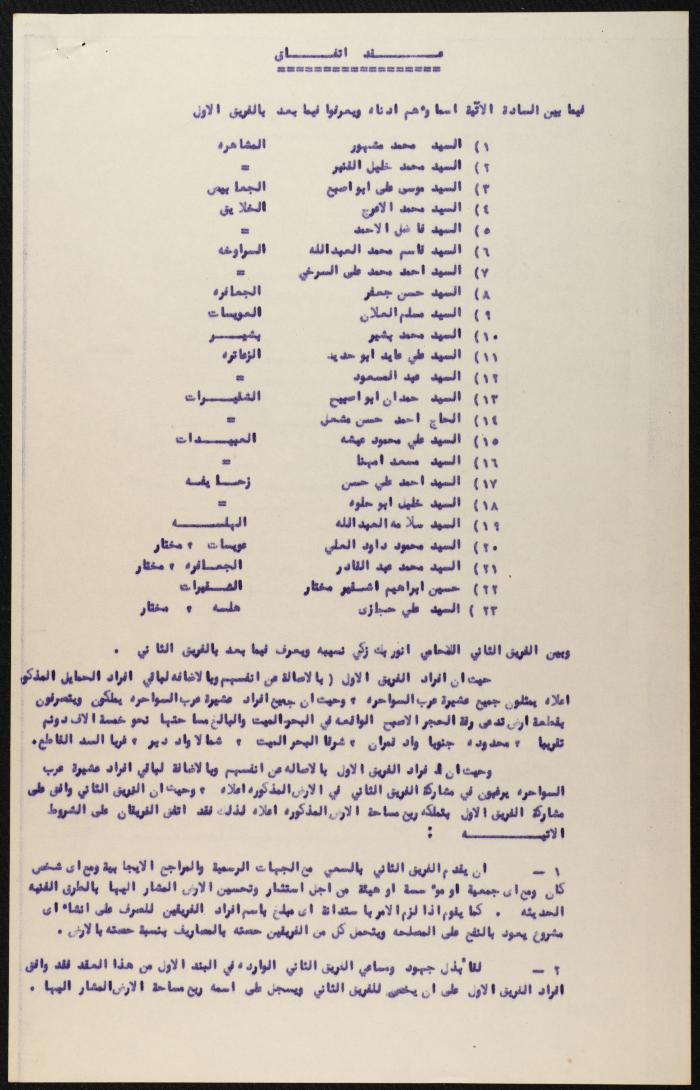 عقد اتفاق
فيما بين السادة الآتية اسماؤهم ادناه ويعرفوا فيما بعد بالفريق الاول
١) السيد محمد مشهور المشاهره
٢) السيد محمد خليل القنبر =
٣) السيد موسى على ابو اصبع الجعابيص
٤) السيد محمد الاعرج الخلايق
٥) السيد فاضل الاحمد =
٦) السيد قاسم محمد العبدالله السراوخه
٧) السيد احمد محمد على السرخي =
٨) السيد حسن جعفر الجعافره
٩) السيد مسلم العلان العويسات
١٠) السيد محمد بشير بشير
١١) السيد علي عايد ابو حديد الزعاتره
١٢) السيد عبد المسعود =
١٣) السيد حمدان ابو اصبيح الشقيرات
١٤) الحاج احمد حسن مشعل =
١٥) السيد علي محمود عيشه العبيدات
١٦) السيد مسعد امهنا =
١٧) السيد احمد علي حسن زحايفه
١٨) السيد خليل ابو حلوه =
١٩) السيد سلامه العبدالله الهلسه
٢٠) السيد محمود داود العلي عويسات ، مختار
٢١) السيد محمد عبد القادر الجعافره ، مختار
٢٢) حسين ابراهيم اشقير مختار الشقيرات
٢٣) السيد علي حجازى هلسه ، مختار
وبين الفريق الثاني المحامي انور بك زكي نسيبه ويعرف فيما بعد بالفريق الثاني .
حيث ان افراد الفريق الاول ( بالاصالة عن انفسهم وبالاضافه لباقي افراد الحمايل المذكو
اعلاه يمثلون جميع عشيرة عرب السواحره ، وحيث ان جميع افراد عشيرة عرب السواحره يملكون ويتصرفون
بقطعة ارض تدعى رقة الحجر الاصبح الواقعه في البحر الميت والبالغ مساحتها نحو خمسة الاف دونم
تقريبا ، محدوده جنوبا واد قمران ، شرقا البحر الميت ، شمالا واد دبر ، غربا السد القاطع.
وحيث ان افراد الفريق الاول بالاصاله عن انفسهم وبالاضافة لباقي افراد عشيرة عرب
السواحره يرغبون في مشاركة الفريق الثاني في الارض المذكوره اعلاه ، وحيث ان الفريق الثاني وافق على
مشاركة الفريق الاول بتملكه ربع مساحة الارض المذكوره اعلاه لذلك فقد اتفق الفريقان على الشروط
الاتيه :
١ — ان يقدم الفريق الثاني بالسعي مع الجهات الرسمية والمراجع الايجابية ومع اى شخص
كان ومع اى جمعية او مؤسسة او هيئة من اجل استثمار وتحسين الارض المشار اليها بالطرق الفنيه
الحديثه . كما يقوم اذا لزم الامر باستدانة اى مبلغ باسم افراد الفريقين للصرف على انشاء اى
مشروع يعود بالنفع على المصلحه ويتحمل كل من الفريقين حصته بالمصاريف بنسبة حصته بالارض .
٢ — لقاء بذل جهود ومساعي الفريق الثاني الوارده في البند الاول من هذا العقد فقد وافق
افراد الفريق الاول على ان يخص للفريق الثاني ويسجل على اسمه ربع مساحة الارض المشار اليها .